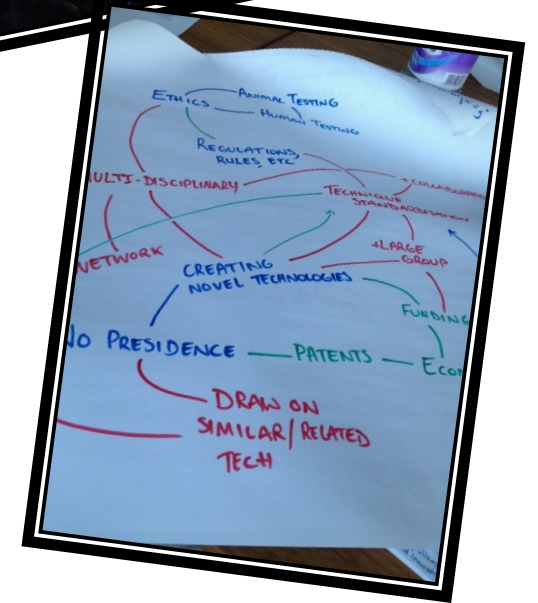 ETHICS
ANIMAL TESTING
HUMAN TESTING
REGULATIONS,
RULES, ETC
ULTI-DISCIPLINARY
+COLLABORATION
TECHNIQUE
STANDARDISATION
NETWORK
+LARGE
GROUP
CREATING
NOVEL TECHNOLOGIES
FUNDING
NO PRESIDENCE
PATENTS
ECON
DRAW ON
SIMILAR/RELATED
TECH